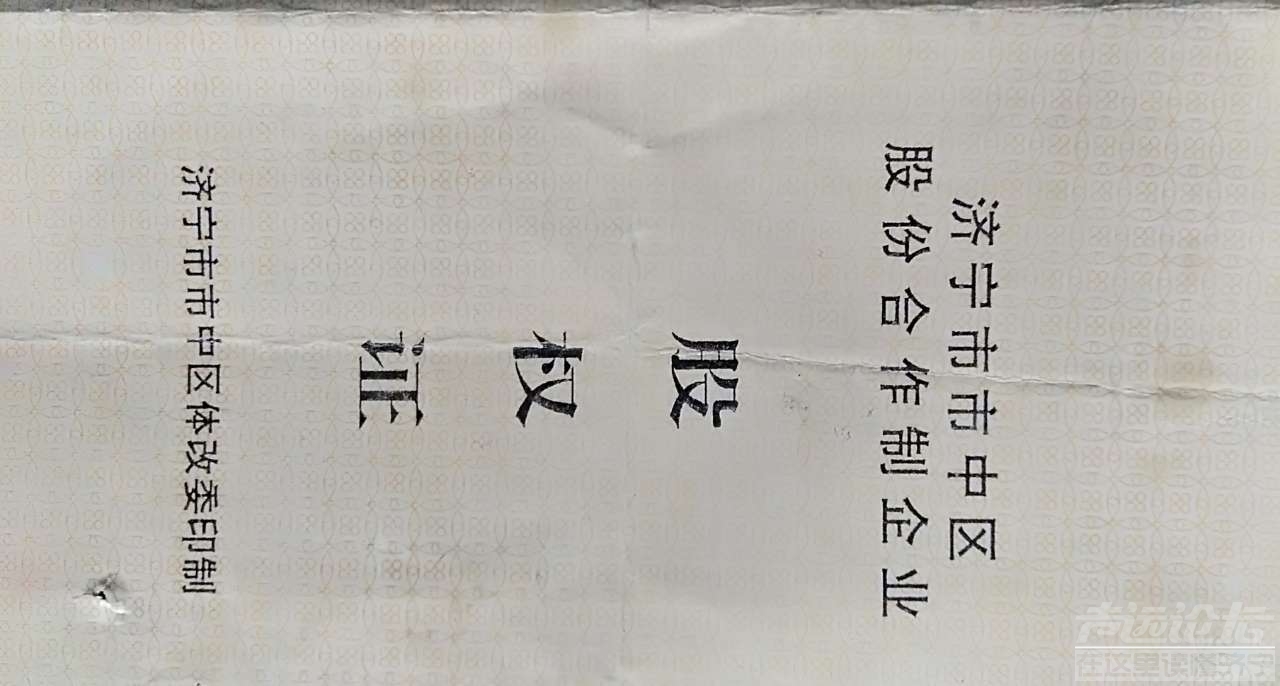 济宁市市中区
股份合作制企业
股
权
证
济宁市市中区体改委印制